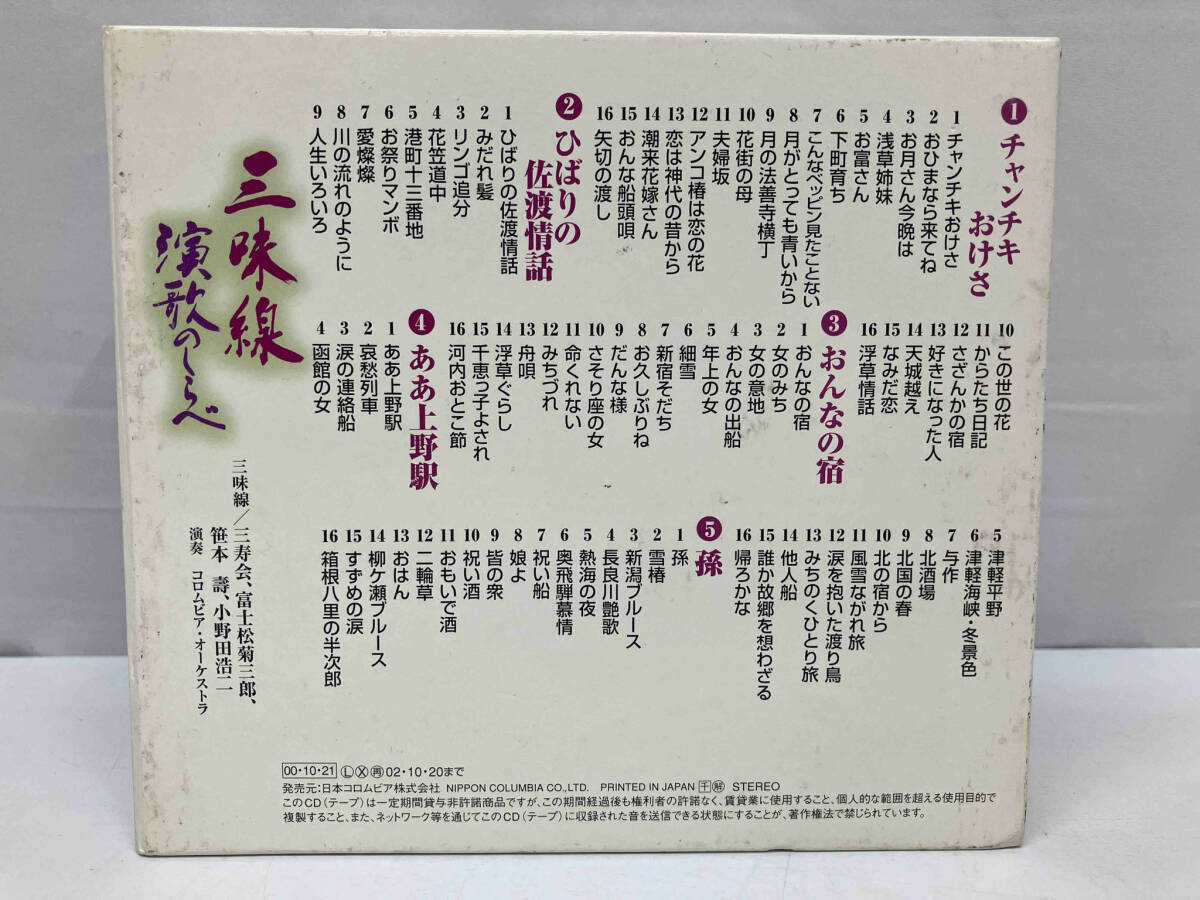 ❶チャンチキおけさ
1 チャンチキおけさ
2 おひまなら来てね
3 お月さん今晩は
4 浅草姉妹
5 お富さん
6 下町育ち
7 こんなベッピン見たことない
8 月がとっても青いから
9 月の法善寺横丁
10 花街の母
11 夫婦坂
12 アンコ椿は恋の花
13 恋は神代の昔から
14 潮来花嫁さん
15 おんな船頭唄
16 矢切の渡し
❷ひばりの佐渡情話
1 ひばりの佐渡情話
2 みだれ髪
3 リンゴ追分
4 花笠道中
5 港町十三番地
6 お祭りマンボ
7 愛燦燦
8 川の流れのように
9 人生いろいろ
10 この世の花
11 からたち日記
12 さざんかの宿
13 好きになった人
14 天城越え
15 なみだ恋
16 浮草情話
❸おんなの宿
1 おんなの宿
2 女のみち
3 女の意地
4 おんなの出船
5 年上の女
6 細雪
7 新宿そだち
8 お久しぶりね
9 だんな様
10 さそり座の女
11 命くれない
12 みちづれ
13 舟唄
14 浮草ぐらし
15 千恵っ子よされ
16 河内おとこ節
❹ああ上野駅
1 ああ上野駅
2 哀愁列車
3 涙の連絡船
4 函館の女
5 津軽平野
6 津軽海峡・冬景色
7 与作
8 北酒場
9 北国の春
10 北の宿から
11 風雪ながれ旅
12 涙を抱いた渡り鳥
13 みちのくひとり旅
14 他人船
15 誰か故郷を想わざる
16 帰ろかな
❺孫
1 孫
2 雪椿
3 新潟ブルース
4 長良川艶歌
5 熱海の夜
6 奥飛騨慕情
7 祝い船
8 娘よ
9 皆の衆
10 祝い酒
11 おもいで酒
12 二輪草
13 おはん
14 柳ケ瀬ブルース
15 すずめの涙
16 箱根八里の半次郎
三味線
演歌のしらべ
三味線/三寿会、富士松菊三郎、
笹本 壽、小野田浩二
演奏 コロムビア・オーケストラ
00・10・21 Ⓛ Ⓧ 再 02・10・20まで
発売元:日本コロムビア株式会社 NIPPON COLUMBIA CO.,LTD. PRINTED IN JAPAN STEREO
このCD(テープ)は一定期間貸与非許諾商品ですが、この期間経過後も権利者の許諾なく、賃貸業に使用すること、個人的な範囲を超える使用目的で
複製すること、また、ネットワーク等を通じてこのCD(テープ)に収録された音を送信できる状態にすることが、著作権法で禁じられています。